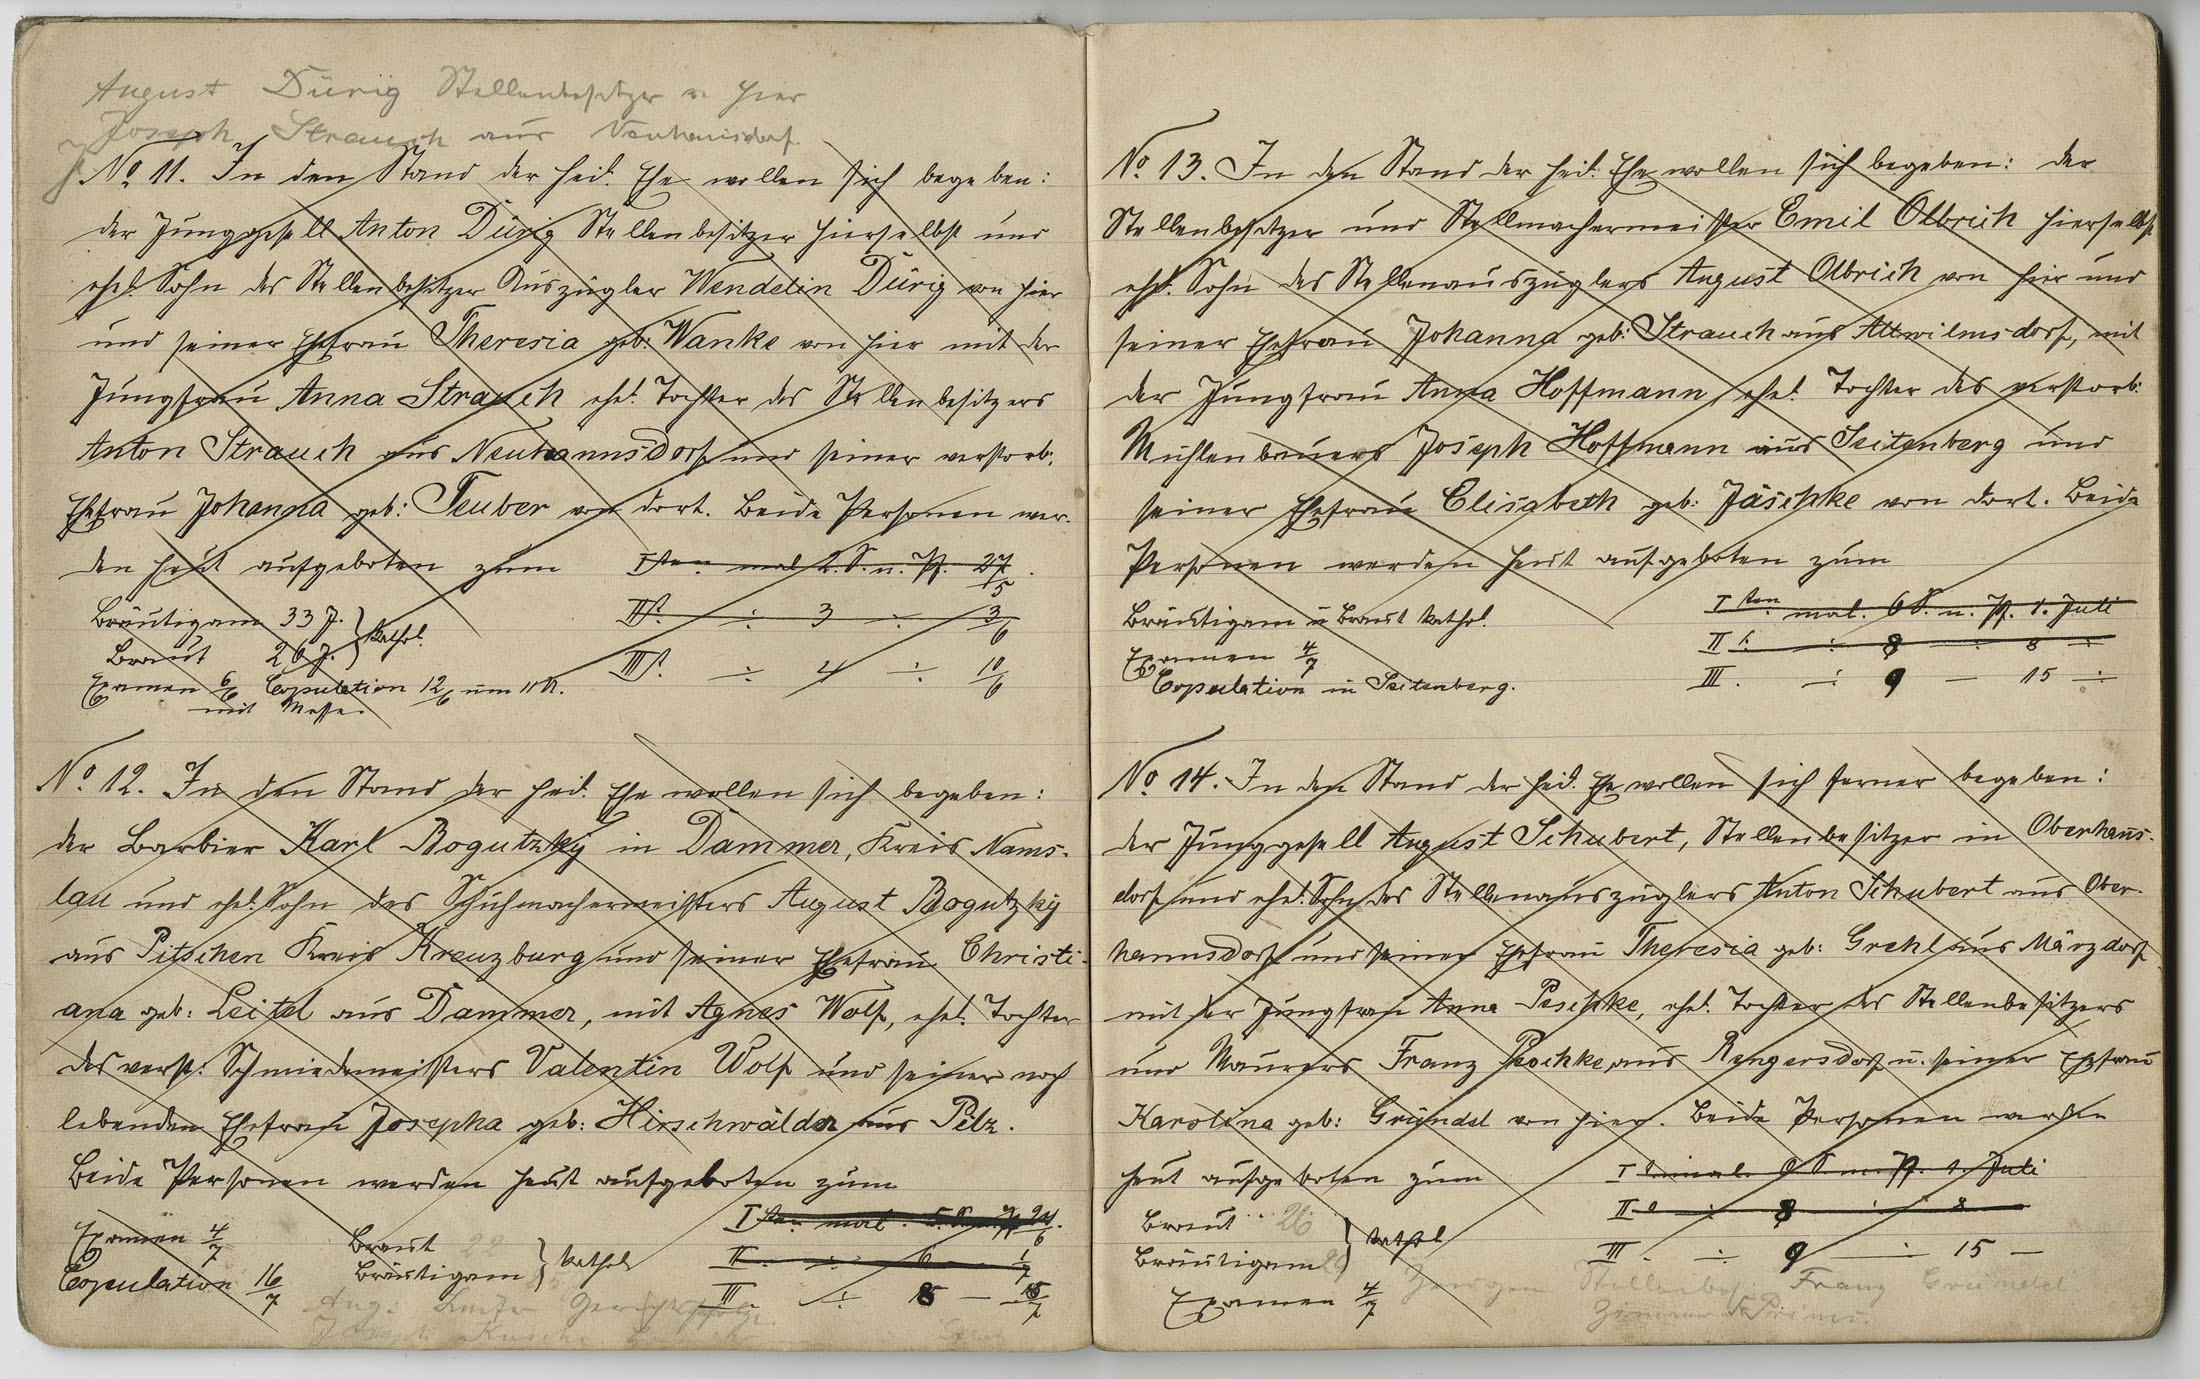 August Dürig Stellenbesitzer v. hier
Joseph Strauch aus Neuhannsdorf
No 11. In den Stand der heil. Ehe wollen sich begeben:
der Junggesell Anton Dürig Stellenbesitzer hierselbst und
ehel. Sohn des Stellenbesitzer Auszügler Wendelin Dürig von hier
und seiner Ehefrau Theresia geb: Wanke von hier mit der
Jungfrau Anna Strauch ehel. Tochter des Stellenbesitzers
Anton Strauch aus Neuhannsdorf und seiner verstorb.
Ehefrau Johanna geb: Teuber von dort. Beide Personen wer-
den heut aufgeboten zum Iten mal 2. S. n. Pf. 27/5.
Bräutigam 33 J. } kathol. IIt. ÷ 3 ÷ 3/6
Braut 26 J.
Examen 6/6 Copulation 12/6 um 11 h. IIIt. ÷ 4 ÷ 10/6
mit Messe.
No 12. In den Stand der heil. Ehe wollen sich begeben:
der Barbier Karl Bogutzky in Dammer, Kreis Nams-
lau und ehel. Sohn des Schuhmachermeisters August Bogutzky
aus Pitschen Kreis Kreuzburg und seiner Ehefrau Christi-
ana geb: Leitel aus Dammer, mit Agnes Wolf, ehel. Tochter
des verst: Schmiedemeisters Valentin Wolf und seiner noch
lebenden Ehefrau Josepha geb: Hirschwälder aus Pilz.
Beide Personen werden heut aufgeboten zum
Iten mal. 5. S. n. Pf. 24/6.
Examen 4/7 Braut 22 } kathol II ÷ 6 1/7
Copulation 16/7 Bräutigam III ÷ 8 — 15/7
Aug:
Joseph
No. 13. In den Stand der heil. Ehe wollen sich begeben: der
Stellenbesitzer und Stellmachermeister Emil Olbrich hierselbst
ehel. Sohn des Stellenauszüglers August Olbrich von hier und
seiner Ehefrau Johanna geb: Strauch aus Altwilmsdorf, mit
der Jungfrau Anna Hoffmann, ehel. Tochter des verstorb:
Mühlenbauers Joseph Hoffmann aus Seitenberg und
seiner Ehefrau Elisabeth geb: Jäschke von dort. Beide
Personen werden heut aufgeboten zum
Bräutigam u Braut kathol. I ten mal. 6 S. n. Pf. 1. Juli
Examen 4/7 II t. ÷ 8 ÷ 8 ÷
Copulation in Seitenberg. III. ÷ 9 — 15 ÷
No. 14. In den Stand der heil. Ehe wollen sich ferner begeben:
der Junggesell August Schubert, Stellenbesitzer in Oberhanns-
dorf und ehel. Sohn des Stellenauszüglers Anton Schubert aus Ober-
hannsdorf und seiner Ehefrau Theresia geb: Grehl aus Märzdorf
mit der Jungfrau Anna Peschke, ehel. Tochter des Stellenbesitzers
und Maurers Franz Peschke aus Rengersdorf u. seiner Ehefrau
Karolina geb: Gründel von hier. Beide Personen werden
heut aufgeboten zum I t. mal. 6 S. n. Pf. 1. Juli
Braut 26 } kathol II ÷ 8 ÷ 8
Bräutigam 29 III. ÷ 9 ÷ 15 —
Examen 4/7 Zeugen Stellenbes: Franz Gründel